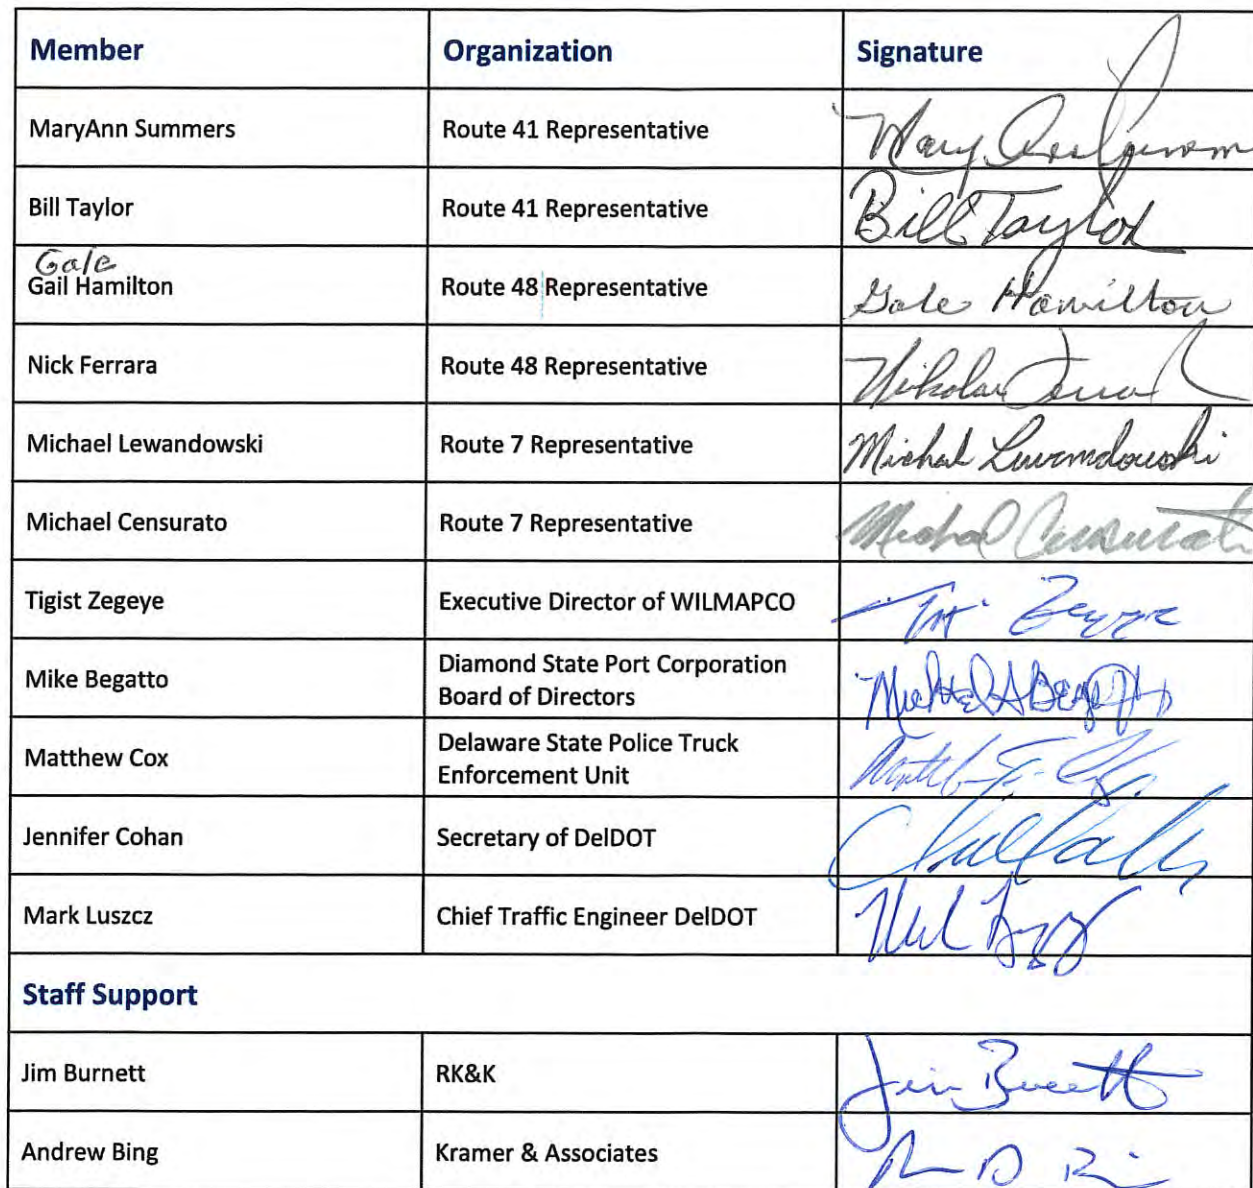 Member Organization Signature
MaryAnn Summers Route 41 Representative Mary
Bill Taylor Route 41 Representative Bill Taylor
Gale
Gail Hamilton Route 48 Representative Gale Hamilton
Nick Ferrara Route 48 Representative
Michael Lewandowski Route 7 Representative Michael Lewandowski
Michael Censurato Route 7 Representative Michael Censurato
Tigist Zegeye Executive Director of WILMAPCO
Mike Begatto Diamond State Port Corporation
Board of Directors
Matthew Cox Delaware State Police Truck
Enforcement Unit
Jennifer Cohan Secretary of DelDOT
Mark Luszcz Chief Traffic Engineer DelDOT
Staff Support
Jim Burnett RK&K Jim Burnett
Andrew Bing Kramer & Associates